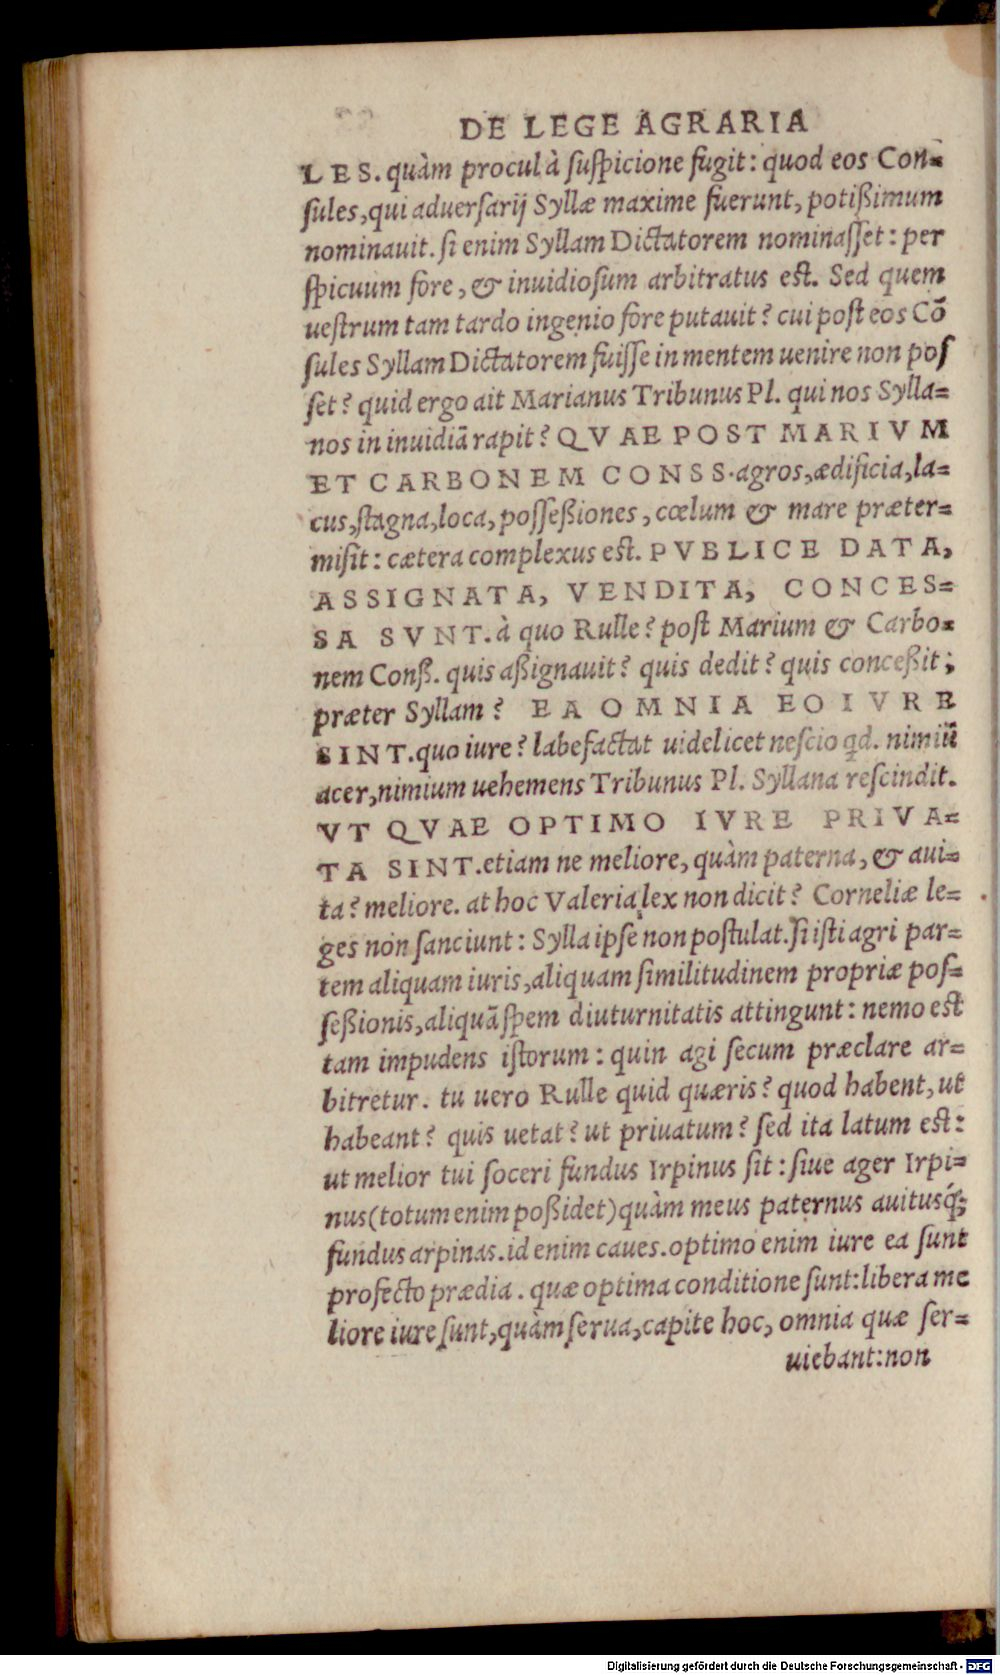 DE LEGE AGRARIA
LES. quàm procul à suspicione fugit: quod eos Con=
sules, qui aduersarij Syllæ maxime fuerunt, potißimum
nominauit. si enim Syllam Dictatorem nominasset: per
spicuum fore, & inuidiosum arbitratus est. Sed quem
uestrum tam tardo ingenio fore putauit? cui post eos Cō
sules Syllam Dictatorem fuisse in mentem uenire non pos
set? quid ergo ait Marianus Tribunus Pl. qui nos Sylla=
nos in inuidiā rapit? QVAE POST MARIVM
ET CARBONEM CONSS. agros, ædificia, la=
cus, stagna, loca, posseßiones, cœlum & mare præter=
misit: cætera complexus est. PVBLICE DATA,
ASSIGNATA, VENDITA, CONCES=
SA SVNT. à quo Rulle? post Marium & Carbo=
nem Conß. quis aßignauit? quis dedit? quis conceßit;
præter Syllam? EA OMNIA EO IVRE
SINT. quo iure? labefactat uidelicet nescio qd. nimiū
acer, nimium uehemens Tribunus Pl. Syllana rescindit.
VT QVAE OPTIMO IVRE PRIVA=
TA SINT. etiam ne meliore, quàm paterna, & aui=
ta? meliore. at hoc Valeria lex non dicit? Corneliæ le=
ges non sanciunt: Sylla ipse non postulat. si isti agri par=
tem aliquam iuris, aliquam similitudinem propriæ pos=
seßionis, aliquā spem diuturnitatis attingunt: nemo est
tam impudens istorum: quin agi secum præclare ar=
bitretur. tu uero Rulle quid quæris? quod habent, ut
habeant? quis uetat? ut priuatum? sed ita latum est:
ut melior tui soceri fundus Irpinus sit: siue ager Irpi=
nus (totum enim poßidet) quàm meus paternus auitusq́;
fundus arpinas. id enim caues. optimo enim iure ea sunt
profecto prædia. quæ optima conditione sunt: libera me
liore iure sunt, quàm serua, capite hoc, omnia quæ ser=
uiebant: non
Digitalisierung gefördert durch die Deutsche Forschungsgemeinschaft - DFG